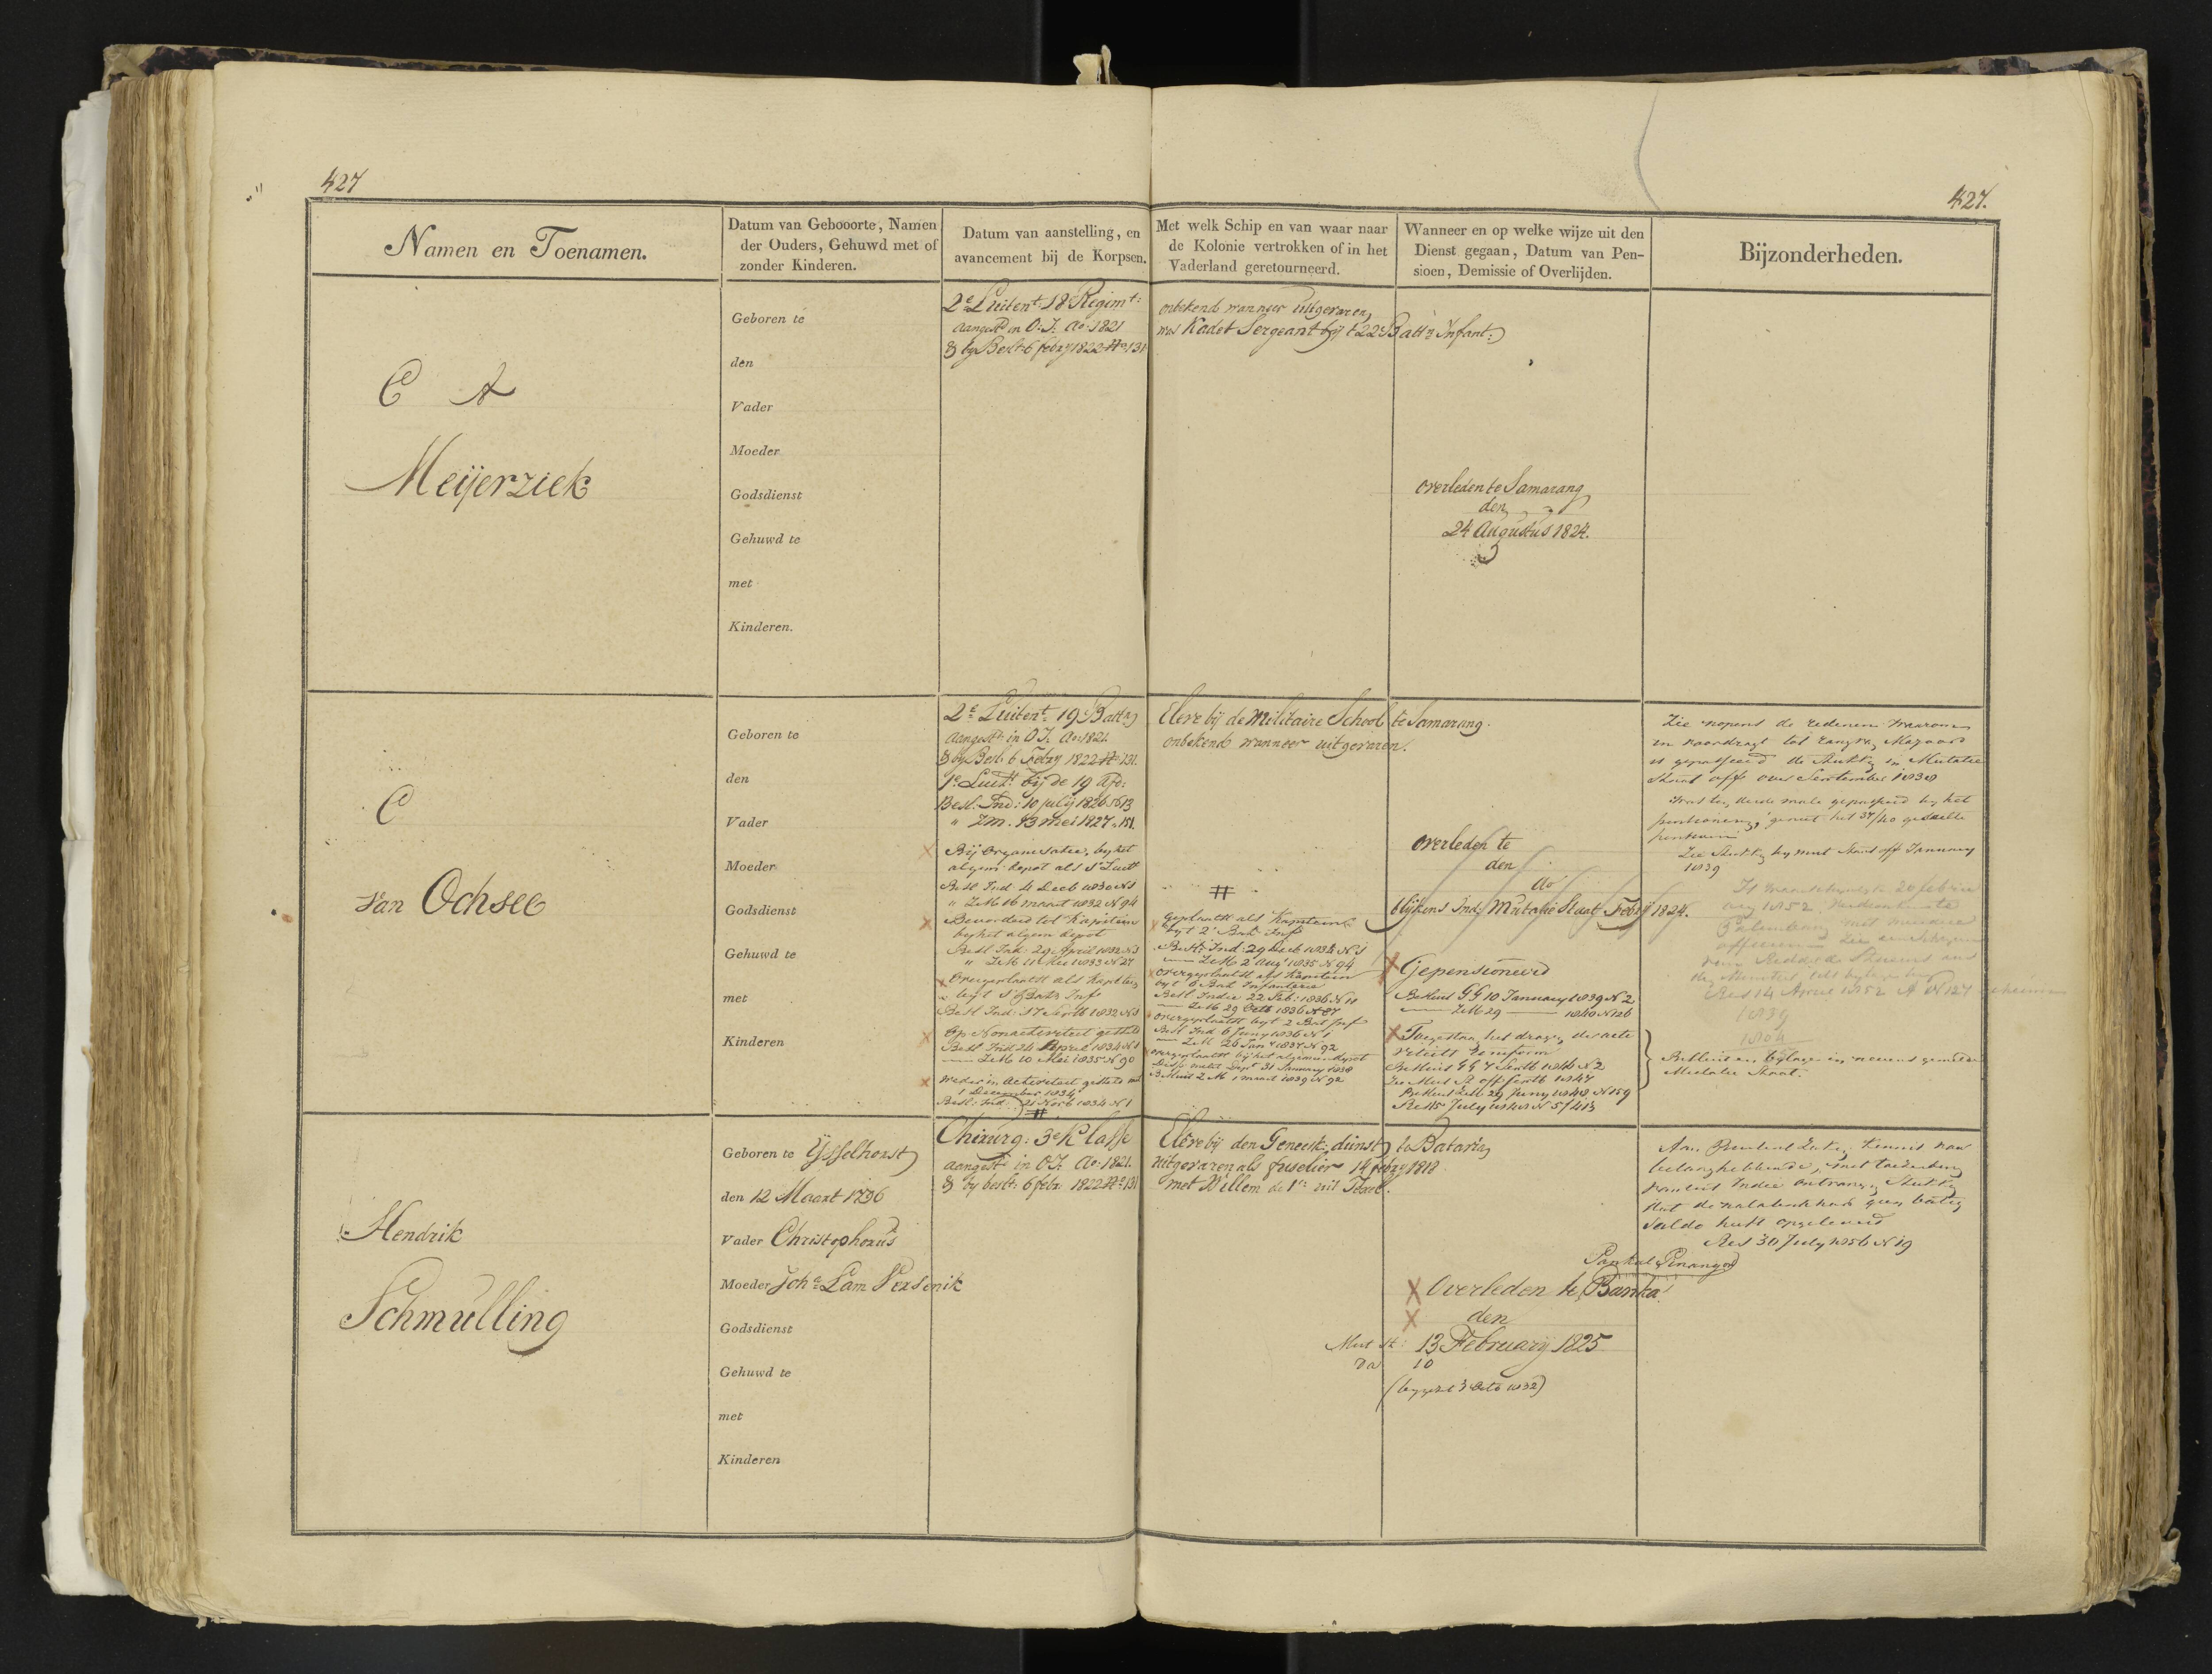 427
427.
Namen en Toenamen.
Datum van Gebooorte, Namen
der Ouders, Gehuwd met of
zonder Kinderen.
Datum van aanstelling, en
avancement bij de Korpsen.
Met welk Schip en van waar naar
de Kolonie vertrokken of in het
Vaderland geretourneerd.
Wanneer en op welke wijze uit den
Dienst gegaan, Datum van Pen-
sioen, Demissie of Overlijden.
Bijzonderheden.
C A
Meijerziek
Geboren te
den
Vader
Moeder
Godsdienst
Gehuwd te
met
Kinderen.
2e Luitent: 18 Regimt:
aangestd in O: I. Ao: 1821
& by Beslt: 6 febry 1822 No: 131
onbekend wanneer uitgevaren,
was Kadet Sergeant bij t 22 Battn Infant:
overleden te Samarang
den
24 Augustus 1824.
C
van Ochsee
Geboren te
den
Vader
Moeder
Godsdienst
Gehuwd te
met
Kinderen
2e Luitent: 19 Battn
aangestd in O I. Ao: 1821.
& by Besl: 6 Febry 1822 No: 131.
1e Luitt: bij de 19 Afd:
Besl: Ind: 10 july 1826 No 13
" ZM. 13 mei 1827 " 151.
Bij Organisatie, by het
algem: depot als 1e Luitt
Besl Ind: 4 Decb 1830 N 1
" ZM 16 maart 1832 N 94
Bevorderd tot Kapitein
by het algem depot
Besl Ind: 29 April 1832 N 3
" ZM 11 Mei 1833 N 27
Overgeplaatst als Kapitein
by t 1e Batn Inf
Besl Ind: 17 Septb 1832 N 3
Op Nonactiviteit gesteld
Besl Ind 24 April 1834 N 1
ZM 10 Mei 1835 N 90
weder in activiteit gesteld met
1 December 1834
Besl: Ind: 21 Novb 1834 N 1
Eleve bij de Militaire School te Samarang.
onbekend wanneer uitgevaren.
geplaatst als Kapitein
by t 2e Bat Inf
Beslt: Ind: 29 Decb 1834 N 1
ZM 2 Augt 1835 N 94
overgeplaatst als Kapitein
by t 6 Bat Infanterie
Besl Indie 22 Feb: 1836 N 11
ZM 29 Octb 1836 N 87
overgeplaatst by t 2 Bat Inf
Besl Ind 6 Juny 1836 N 1
ZM 26 Jan 1837 N 92
overgeplaatst bij het algemeen depot
31 January 1838
Besluit Z M 1 maart 1839 N 92
overleden te
den
Ao
blijkens Ind: Mutatie Staat Febry 1824.
Gepensioneerd
Besluit GG 10 January 1839 N 2
ZM 29 1840 N 126
Toegestaan het dragen der acte
uniform
Besluit GG 7 Septb 1846 N 2
Besluit ZM 29 Juny 1848 N 159
Res 15 July 1848 N 5/413
Zie nopens de redenen waarom
in voordragt tot rang van Majoor
is gepasseerd de Stukken in Mutatie
Staat off over September 1838
pensionering, geniet het 37/40 gedeelte
pensioen
Zie Stukken by mut Staat off January
1839
Res 14 April 1852 N 127
1839
Besluit en bijlage in nevens gemelde
Mutatie Staat.
Hendrik
Schmulling
Geboren te Ysselhorst
den 12 Maart 1796
Vader Christophorus
Moeder Joha Lam Versenik
Godsdienst
Gehuwd te
met
Kinderen
Chirurg: 3e Klasse
aangestd in O I. Ao: 1821.
& by beslt: 6 febr: 1822 No: 131
Eleve bij den Geneesk: dienst te Batavia
uitgevaren als fuselier 14 febry 1818
met Willem de 1e uit Texel.
Pankal Pinang
Overleden te Banka
den
Mut St: 13 February 1825
Da 10
( 3 Octb 1832)
kennis van
belanghebbende, met toezending
van uit Indie ontvangen Stukken
dat de nalatenschap geen batig
Saldo heeft opgeleverd
Res 30 July 1856 N 19